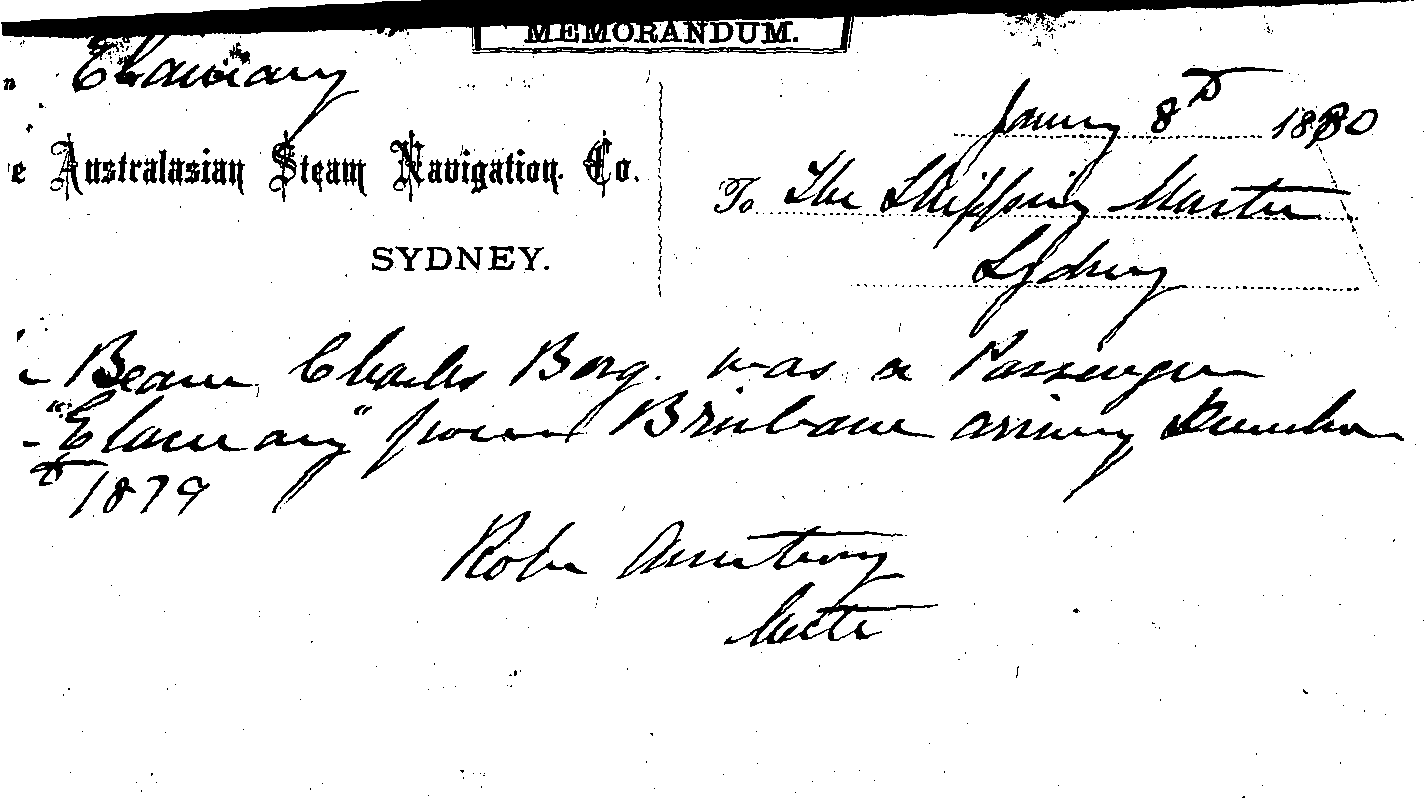 MEMORANDUM.
Elamang
January 8th 1880
e Australasian Steam Navigation. Co.
To The Shipping Master
SYDNEY.
Sydney
Bearer Charles Borg. was a Passenger
"Elamang" from Brisbane arriving December
1879
Robt Armstrong